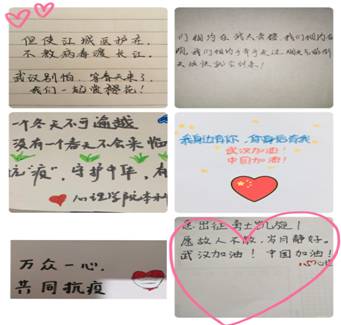 但使江城医护在,
不教病毒渡长江。
武汉别怕,等春天来了,
我们一起赏樱花!
们相约在
我们相约
一个冬天不可逾越
没有一个春天不会来临
抗"疫",守护中华,有
心理学院本科
我身边有你,你身后有我
武汉加油!
中国加油!
万众一心,
共同抗疫
愿出征勇士凯旋!
愿故人不散,岁月静好。
武汉加油!中国加油!